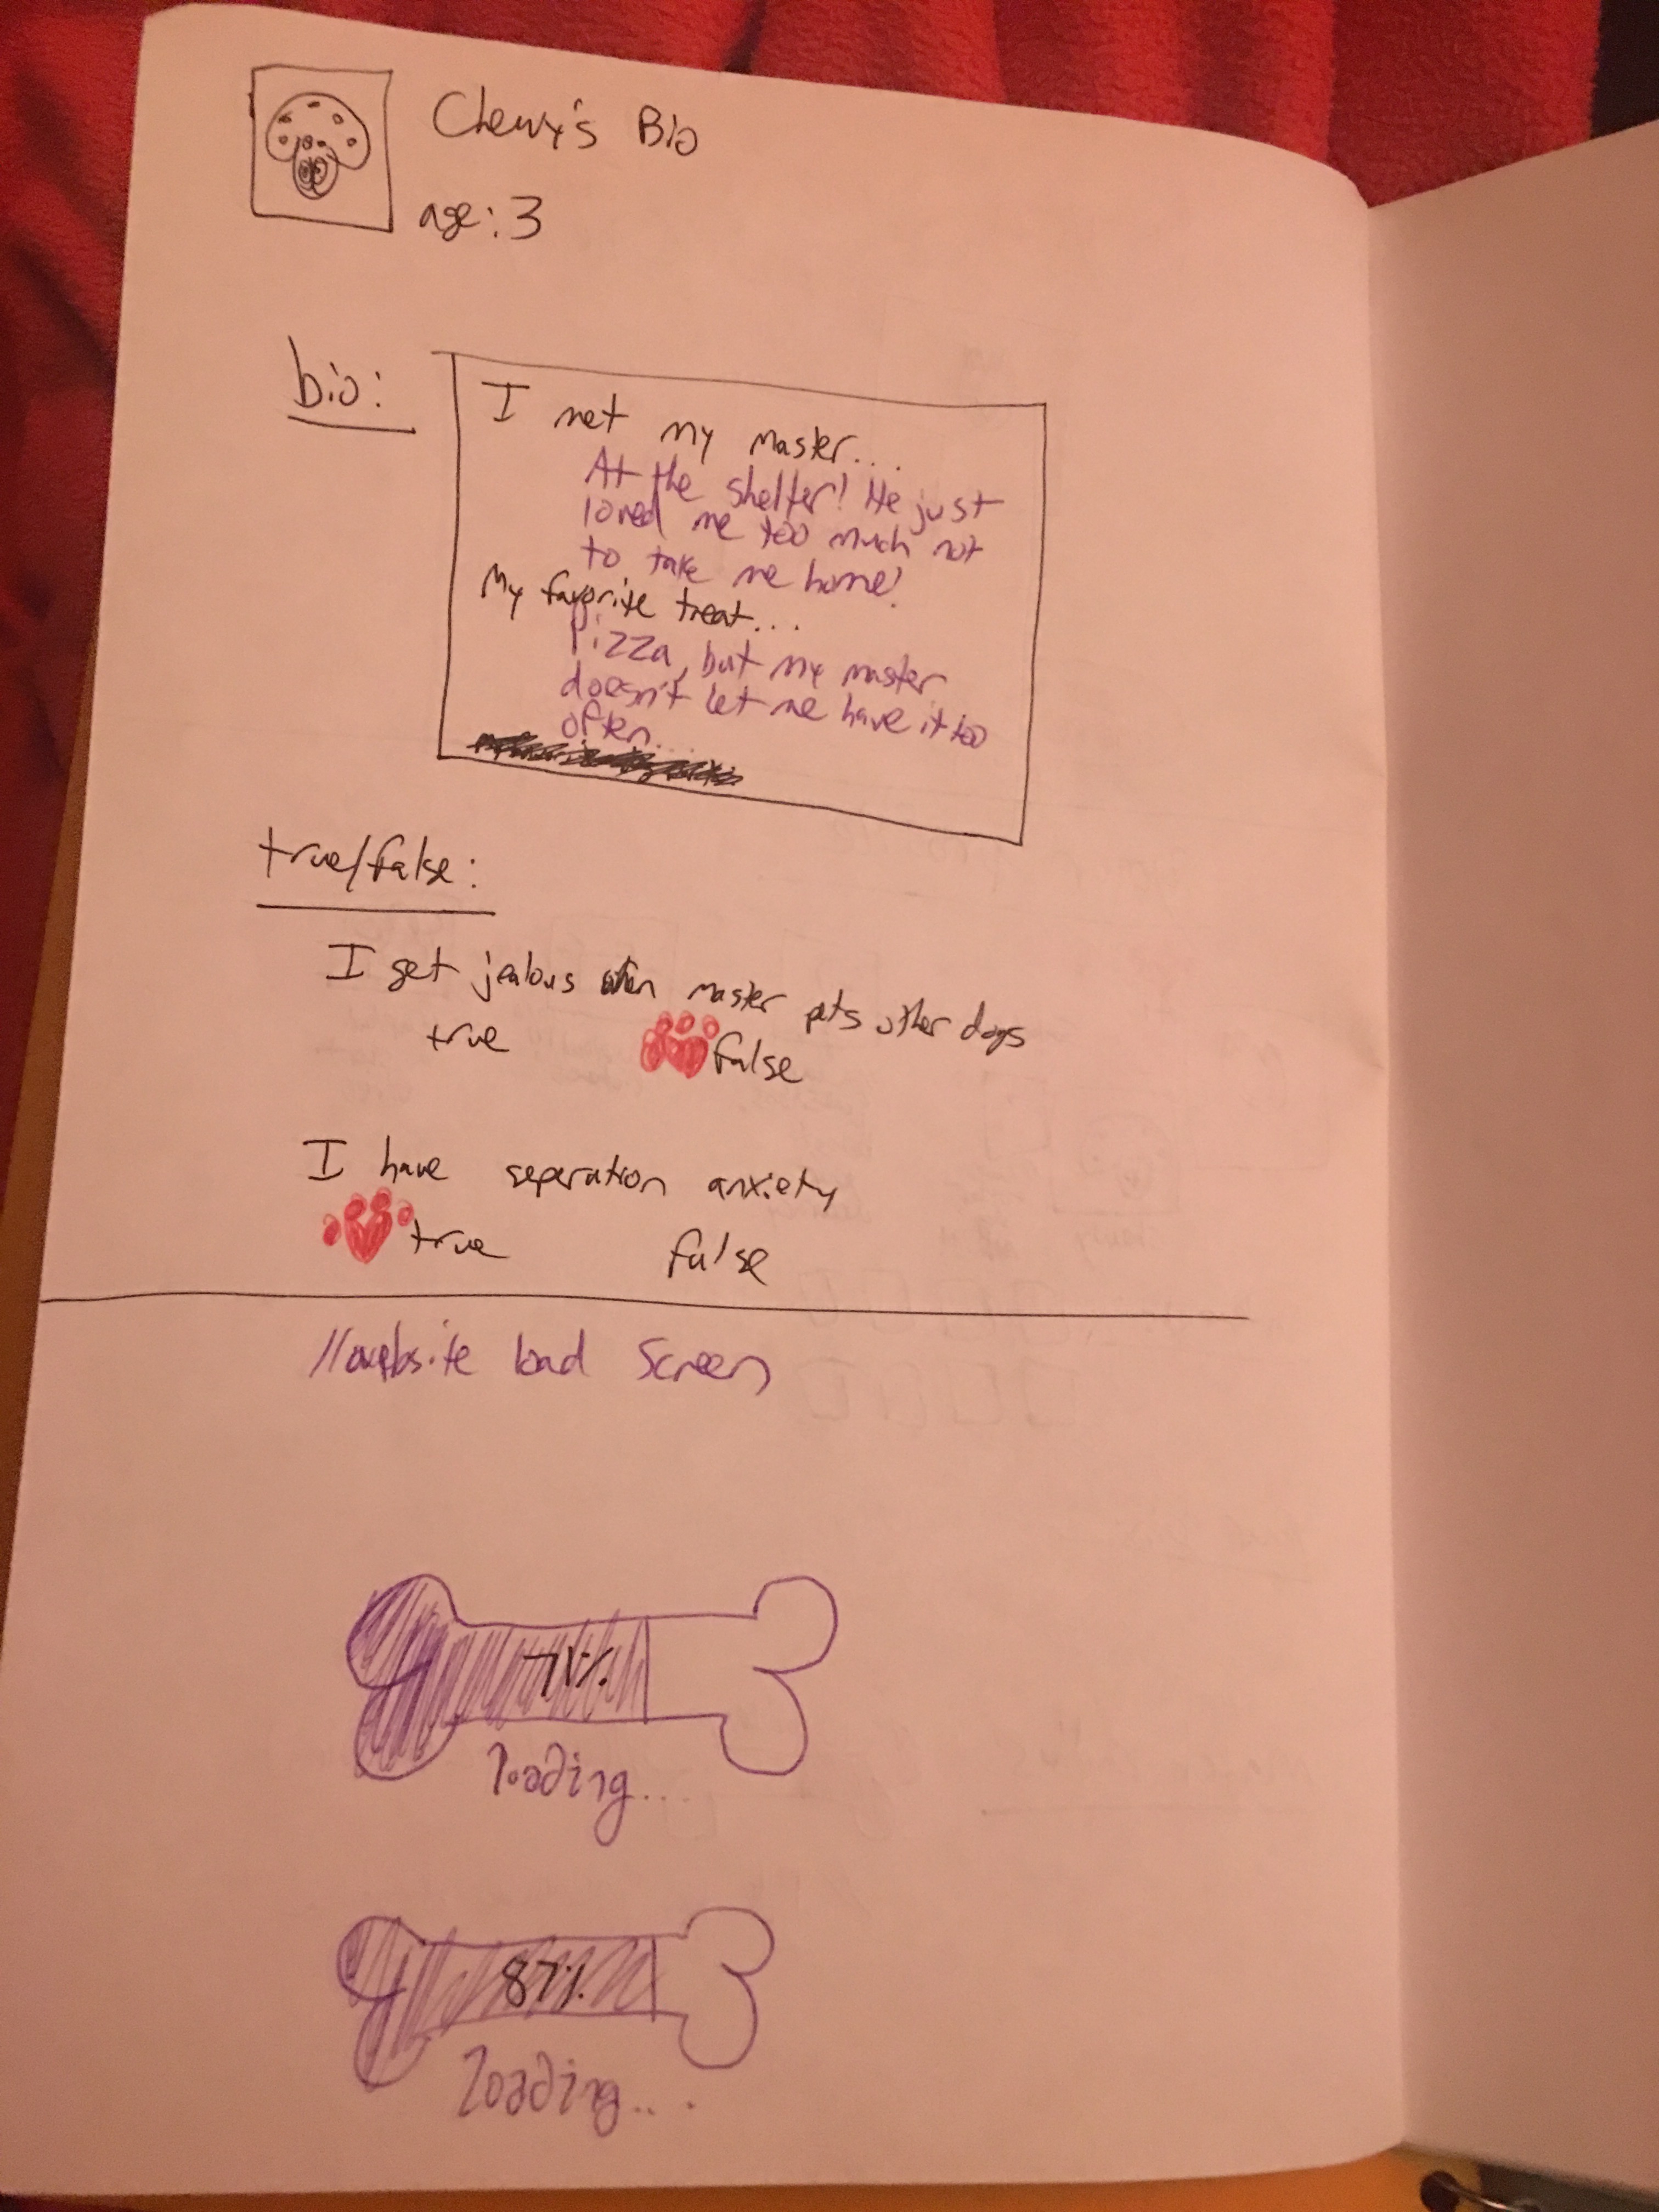 Chewy's Bio
age: 3
bio:
I met my master...
At the shelter! He just
loved me too much not
to take me home!
My favorite treat...
Pizza, but my master
doesn't let me have it too
often...
true/false:
I get jealous when master pets other dogs
true false
I have seperation anxiety
true false
//website load screen
71%
loading...
87%
loading...